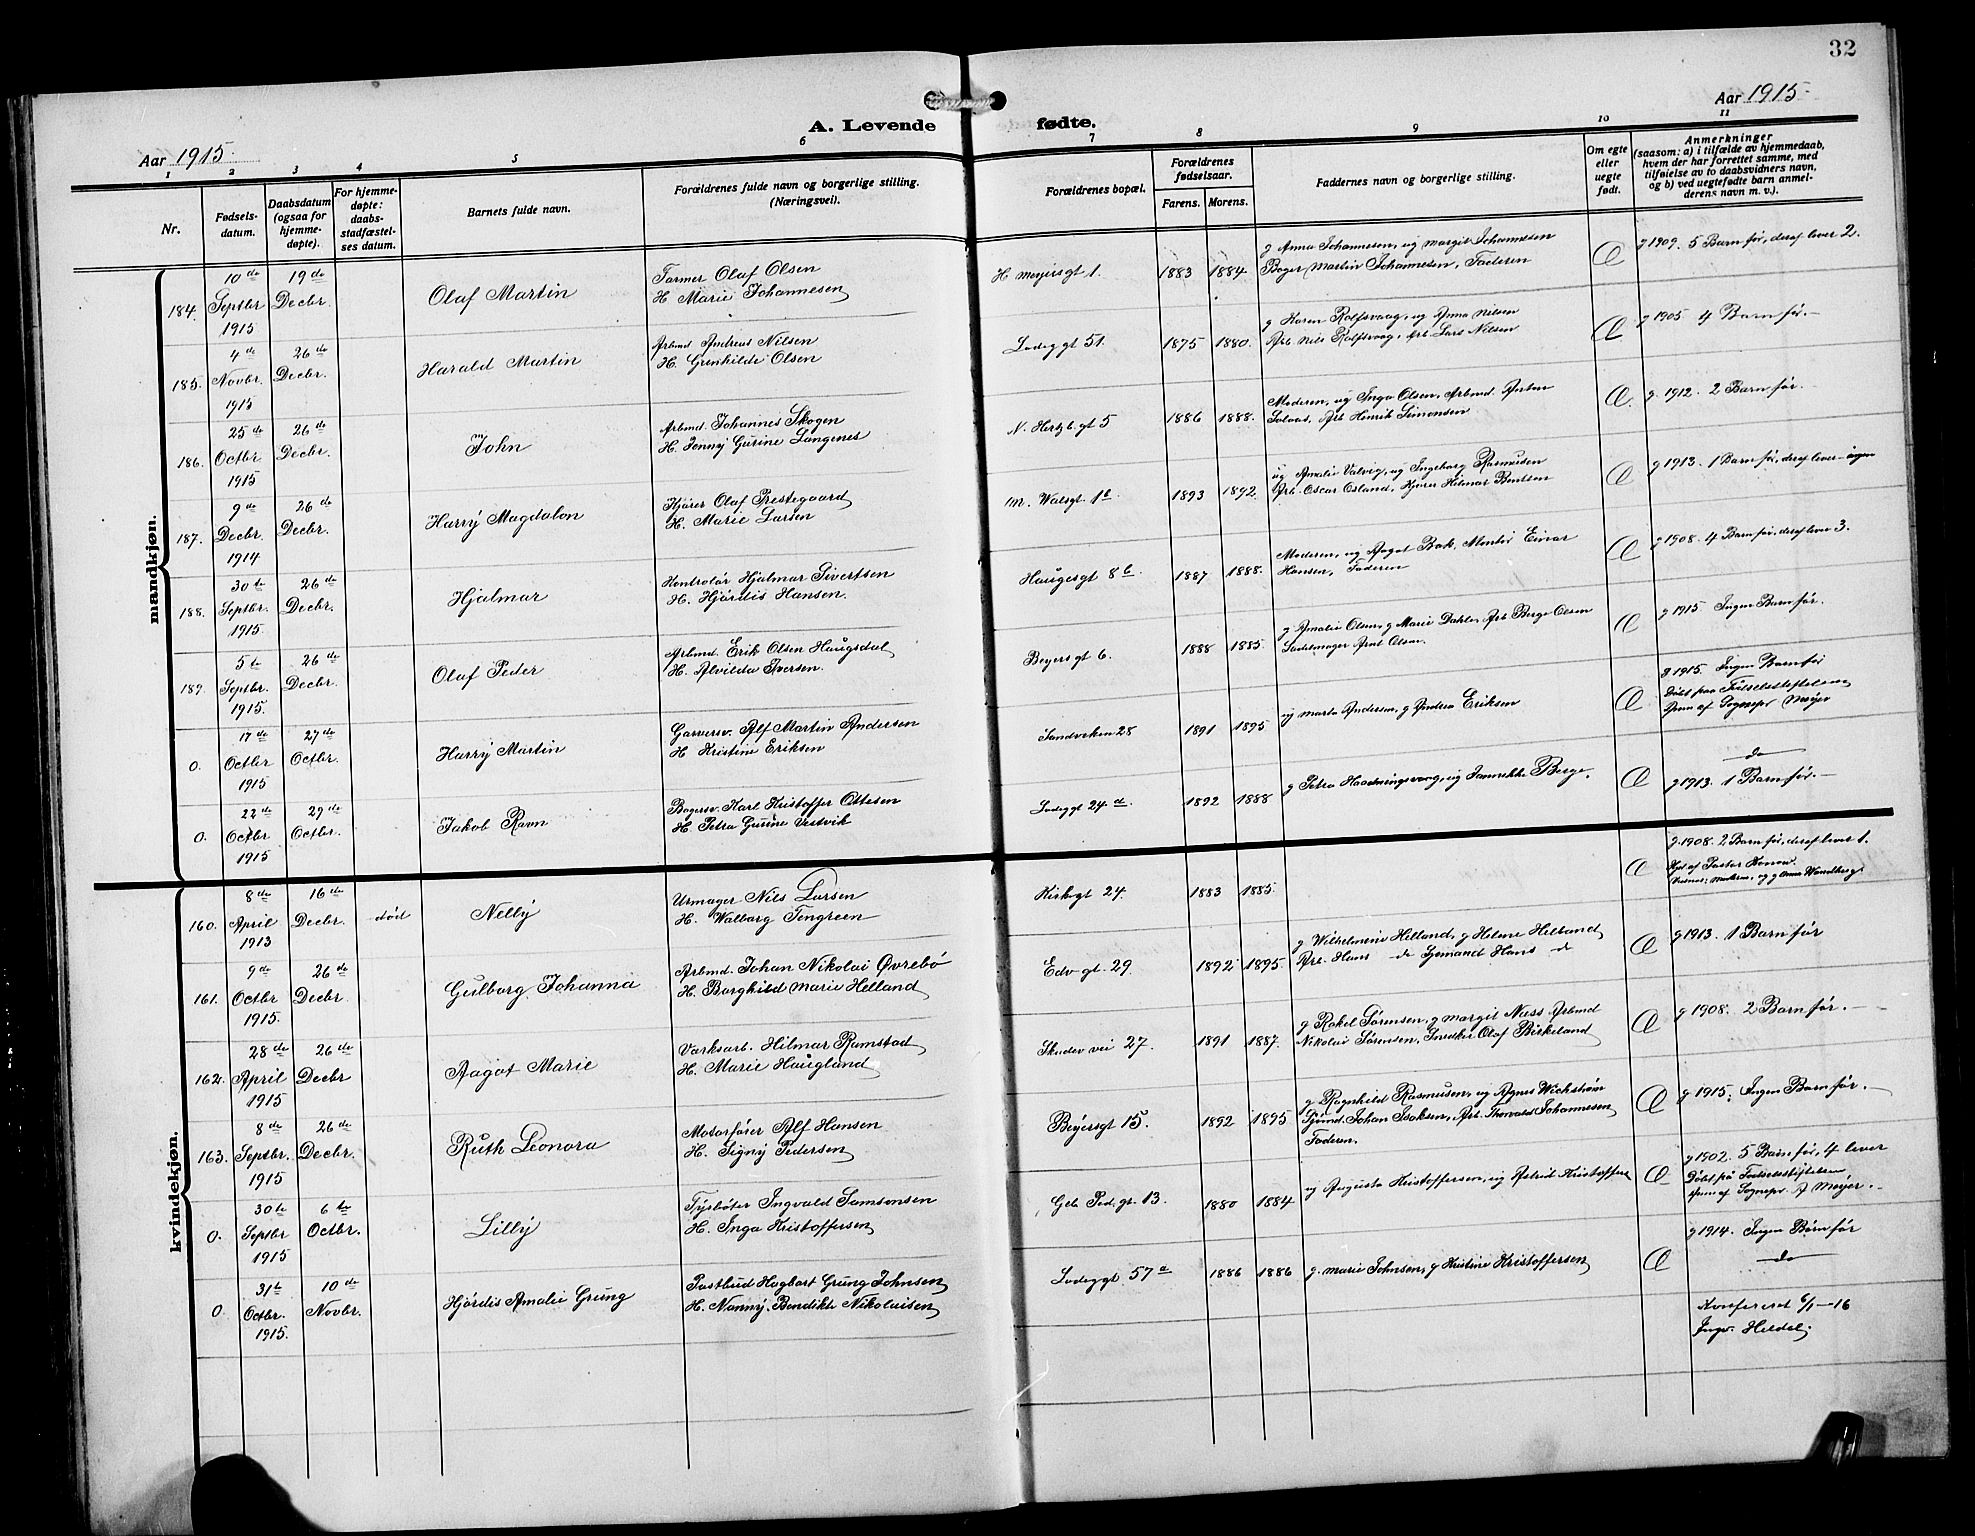 32
Aar 1915.
Aar 1915.
A. Levende fødte.
1 2 3 4 5 6 7 8 9 10 11
Nr.
Fødsels-
datum.
Daabsdatum
(ogsaa for
hjemme-
døpte).
For hjemme-
døpte:
daabs-
stadfæstel-
ses datum.
Barnets fulde navn.
Forældrenes fulde navn og borgerlige stilling.
(Næringsvei).
Forældrenes bopæl.
Forældrenes
fødselsaar.
Farens. Morens.
Faddernes navn og borgerlige stilling.
Om egte
eller
uegte
født.
Anmerkninger
(saasom: a) i tilfælde av hjemmedaab,
hvem der har forrettet samme, med
tilføielse av to daabsvidners navn,
og b) ved uegtefødte barn anmel-
derens navn m. v.).
mandkjøn.
184. 10de Septbr 1915 19de Decbr. Olaf Martin
Farmer Olaf Olsen
H. Marie Johannesen
H Meyersgt 1. 1883 1884
g Anna Johannesen, ug Margit Johannesen
Bager Martin Johannesen, Faderen
Æ g 1909. 5 Barn før, deraf lever 2.
185. 4de Novbr. 1915 26de Decbr. Harald Martin
Arbmd Andreas Nilsen
H. Grinhilde Olsen
Lodeggt 51. 1875 1880.
g Karen Rolfsvaag, ug Anna Nilsen
Arb. Nils Rolfsvaag, Arb Lars Nilsen
Æ g 1905 4 Barn før.
186. 25de Octbr. 1915 26de Decbr. John
Arbmd. Johannes Skogen
H. Jenny Gurine Langenes
N. Hertzb.gt 5 1886 1888.
Moderen, ug Inga Olsen, Arbmd. Anton
Solaas, Arb Henrik Simonsen
Æ. g. 1912. 2 Barn før.
187. 9de Decbr. 1914 26de Decbr. Harry Magdalon
Kjører Olaf Prestegaard
H. Marie Larsen
M. Walsgt. 1 1893 1892
ug Amalie Valvig, ug Ingeborg Rasmusen
Arb. Oscar Osland, Kjører Hilmar Bentsen
Æ g 1913. 1 Barn før, deraf lever ingen
188. 30te Septbr. 1915. 26de Decbr. Hjalmar
Kontrolør Hjalmar Sivertsen
H. Hjørdis Hansen.
Haugesgt 8b. 1887 1888.
Moderen, ug Aagot Bak, Montør Einar
Hansen, Faderen
Æ g 1908. 4 Barn før, deraf lever 3.
189. 5te Septbr. 1915. 26de Decbr. Olaf Peder
Arbmd. Erik Olsen Haugsdal
H. Alvilda Iversen.
Beyersgt 6. 1888 1885.
g Amalie Olsen, g Marie Dahle, Arb Berge Olsen
Sadelmager Arnt Olsen.
Æ g 1915 Ingen Barn før.
0. 17de Octbr 1915 27de Octbr. Harry Martin
Garversv. Alf Martin Andersen
H Kristine Eriksen
Sandveken 28 1891 1895
ug Marta Andersen, g Andrea Eriksen
Æ g 1915. Ingen Barn før
Døbt paa Fødselsstiftelsen
af Sognepr Meyer
0. 22de Octbr 1915 29de Octbr. Jakob Ravn
Bagersv. Karl Kristoffer Ottesen
H. Petra Gurine Vestvik
Lodeggt 24a. 1892 1888
g Petra ug Jannekke Berge.
Æ do
g 1913. 1 Barn før.
kvindekjøn.
160. 8de April 1913 16de Decbr. død Nelly
Urmager Nils Larsen
H. Walborg Tengreen
Kirkegt 24. 1883 1885.
Æ g. 1908. 2 Barn før, deraf lever 1.
Hjd af Pastor
161. 9de Octbr 1915. 26de Decbr. Gulborg Johanna
Arbmd. Johan Nikolai Øvrebø
H. Borghild Marie Helland
Edv gt. 29. 1892 1895.
g Wilhelmine Helland, g Helene Helland
Arb. Hans do Sjømand Hans do
Æ g 1913. 1 Barn før
162. 28de April 1915 26de Decbr Aagot Marie
Varksarb. Hilmar Ramstad
H. Marie Haugland
Skudev vei 27. 1891 1887.
g Rakel Sørensen, g Margit Næss Arbmd
Nikolai Sørensen, Snedker Olaf Birkeland
Æ g 1908. 2 Barn før.
163. 8de Septbr. 1915 26de Decbr. Ruth Leonora
Motorfører Alf Hansen
H. Signy Pedersen
Beyersgt 15. 1892 1895
g Ragnhild Rasmusen, ug Agnes Wickstrøm
Sjømd. Johan Isaksen, Arb. Thorvald Johannesen
Faderen.
Æ g 1915. Ingen Barn før.
0. 30te Septbr 1915 6te Octbr. Lilly
Fyrbøter Ingvald Samsonsen
H. Inga Kristoffersen
Geb Ped. gt. 13. 1880 1884
ug Augusta Kristoffersen, ug Astrid Kristoffersen
Æ g 1902. 5 Barn før, 4 lever
Døbt på Fødselsstiftelsen
af Sognepr. Meyer.
0. 31te Octbr. 1915. 10de Novbr. Hjørdis Amalie Grung
Postbud Hagbart Grung Johnsen
H. Nanny Bendikte Nikolaisen
Lodeggt 57a 1886 1886
g. Marie Johnsen, g Kristine Kristoffersen
Æ g 1914. Ingen Børn før
do
Konfereret 6/1-16
Ingv. Heldal.